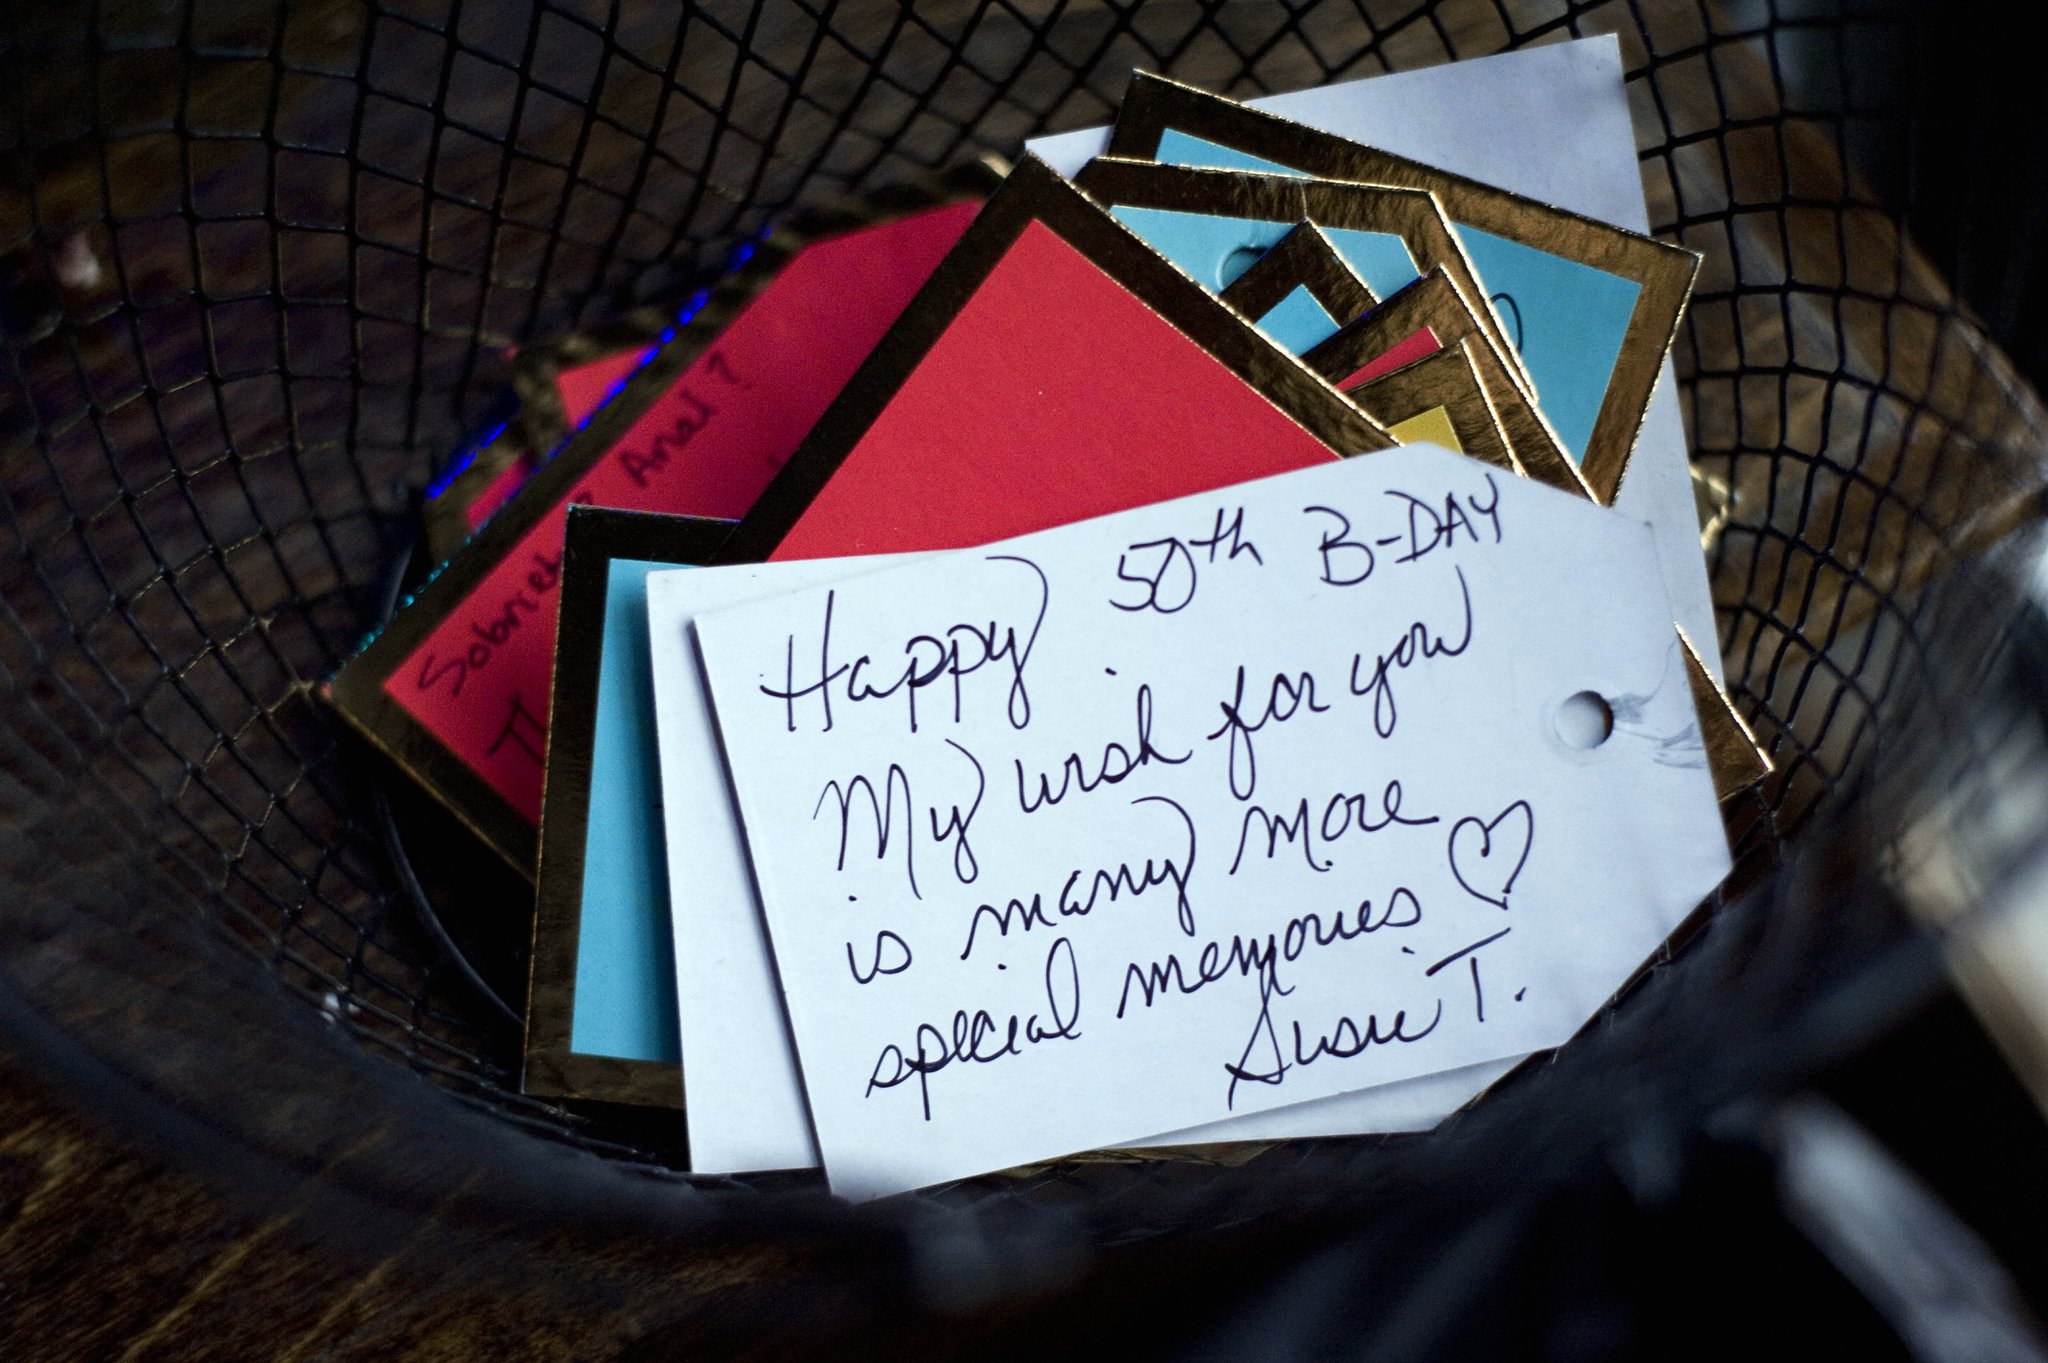 Happy 50th B-DAY
My wish for you
is many more
special memories ♡
Susie T.
Anal?